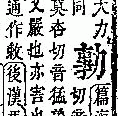 大力
篇海
同
莫杏切音猛
又嚴也亦害也
通作敕後漢